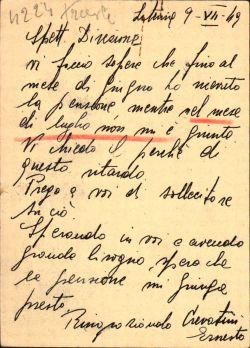 4224 Trieste
9 - VII - 49
Spett. Direzione
vi faccio sapere che fino al
mese di giugno ho ricevuto
la pensione mentre nel mese
di luglio non mi è giunta
Vi chiedo il perchè di
questo ritardo.
Prego a voi di sollecitare
in ciò.
Sperando in voi e avendo
grande bisogno spero che
la pensione mi giunga
presto.
Ringraziando
Ernesto